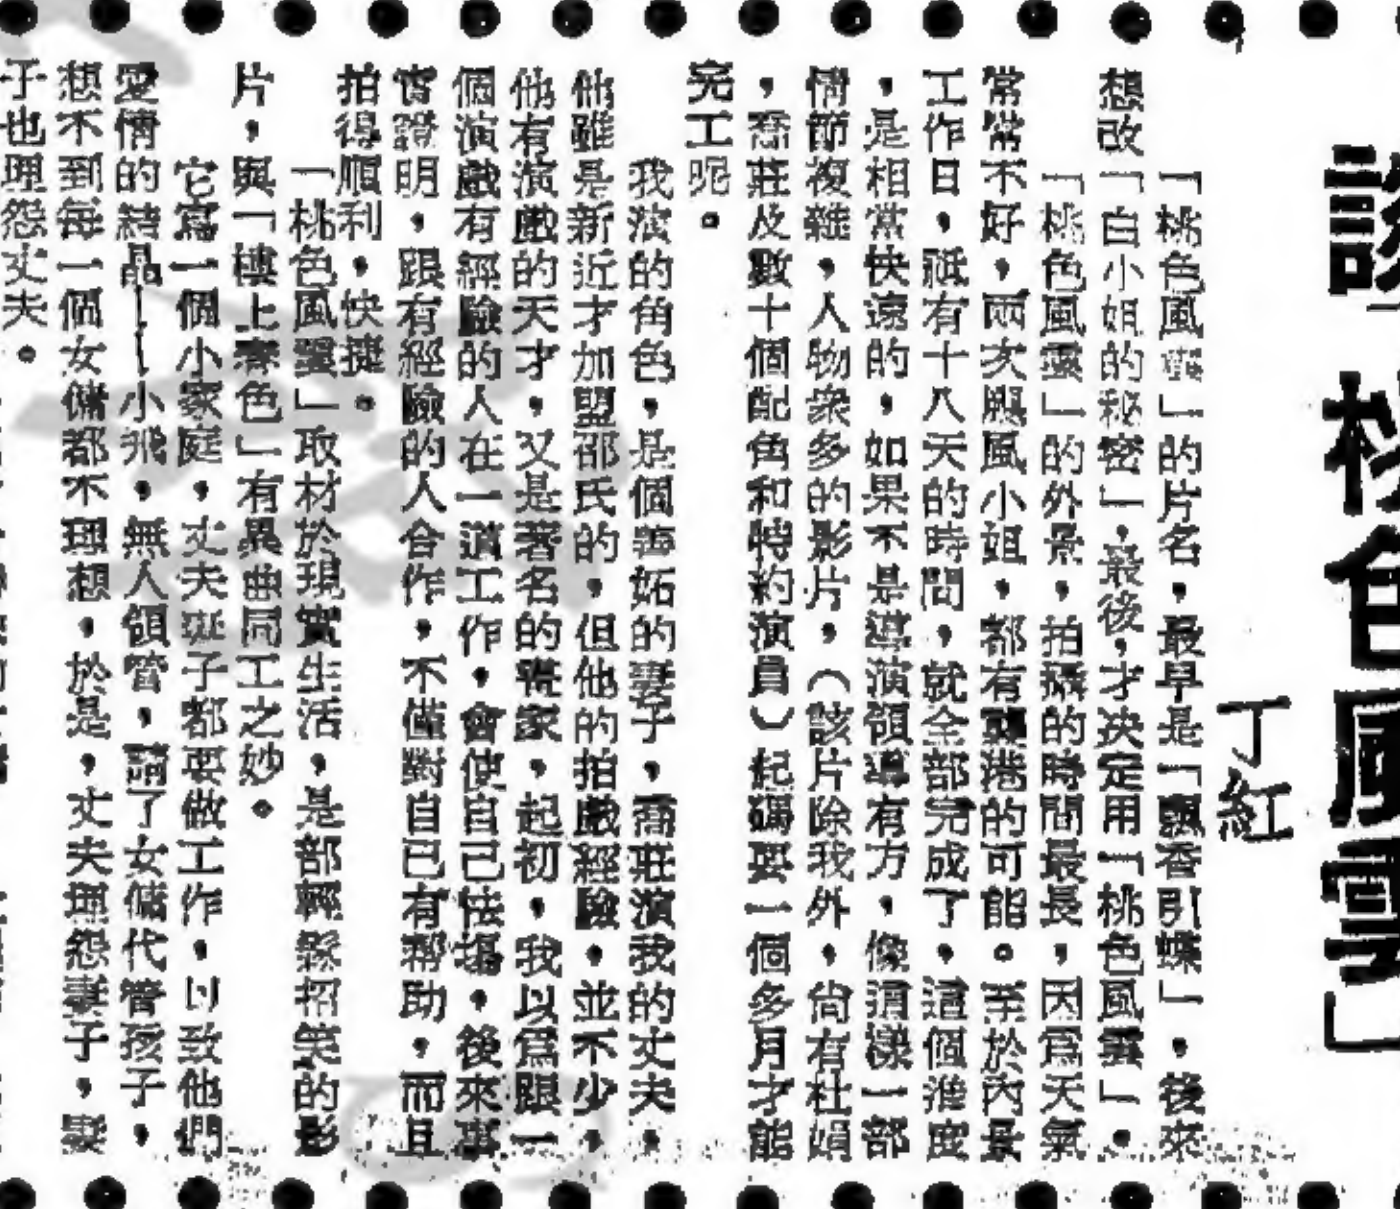 談「桃色風雲」
丁紅
「桃色風雲」的片名，最早是「飄香引蝶」，後來
想改「白小姐的秘密」，最後，才決定用「桃色風雲」。
「桃色風雲」的外景，拍攝的時間最長，因爲天氣
常常不好，兩次颶風小姐，都有襲港的可能。至於內景
工作日，祗有十八天的時間，就全部完成了，這個進度
，是相當快速的，如果不是導演領導有方，像這樣一部
情節複雜，人物衆多的影片，（該片除我外，尙有杜娟
，喬莊及數十個配角和特約演員）起碼要一個多月才能
完工呢。
我演的角色，是個善妬的妻子，喬莊演我的丈夫，
他雖是新近才加盟邵氏的，但他的拍戲經驗，並不少，
他有演戲的天才，又是著名的 家，起初，我以爲跟一
個演戲有經驗的人在一道工作，會使自己怯場，後來事
實證明，跟有經驗的人合作，不僅對自已有帮助，而且
拍得順利，快捷。
「桃色風雲」取材於現實生活，是部輕鬆招笑的影
片，與「樓上春色」有異曲同工之妙。
它寫一個小家庭，丈夫妻子都要做工作，以致他們
愛情的結晶——小飛，無人領管，請了女傭代管孩子，
想不到每一個女傭都不理想，於是，丈夫埋怨妻子，妻
子也埋怨丈夫。